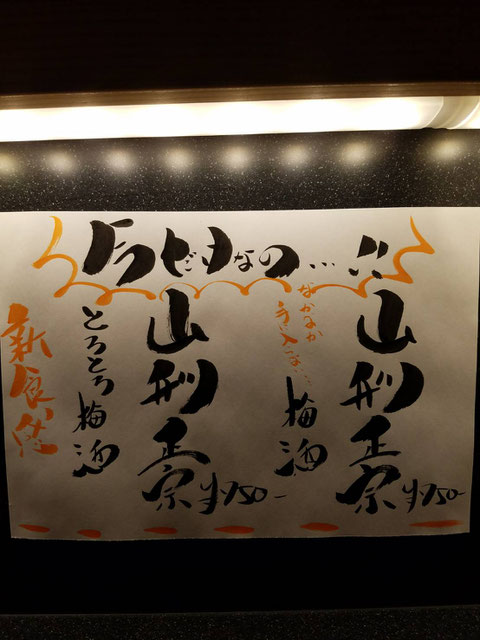 なの...!!
山形正宗 ¥750-
なかなか
手に入らない...
梅酒
山形正宗 ¥750-
とろとろ梅酒
新食感